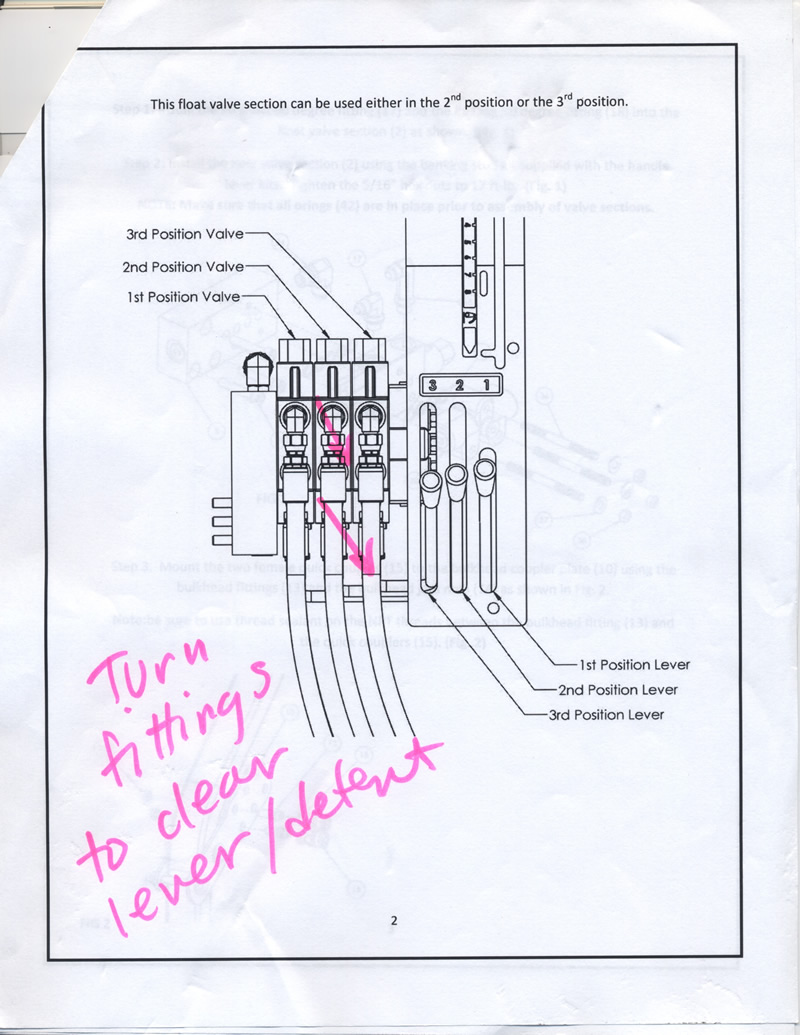 This float valve section can be used either in the 2nd position or the 3rd position.
3rd Position Valve
2nd Position Valve
1st Position Valve
4
5
6
7
8
3 2 1
1st Position Lever
2nd Position Lever
3rd Position Lever
Turn
fittings
to clear
lever/detent
2